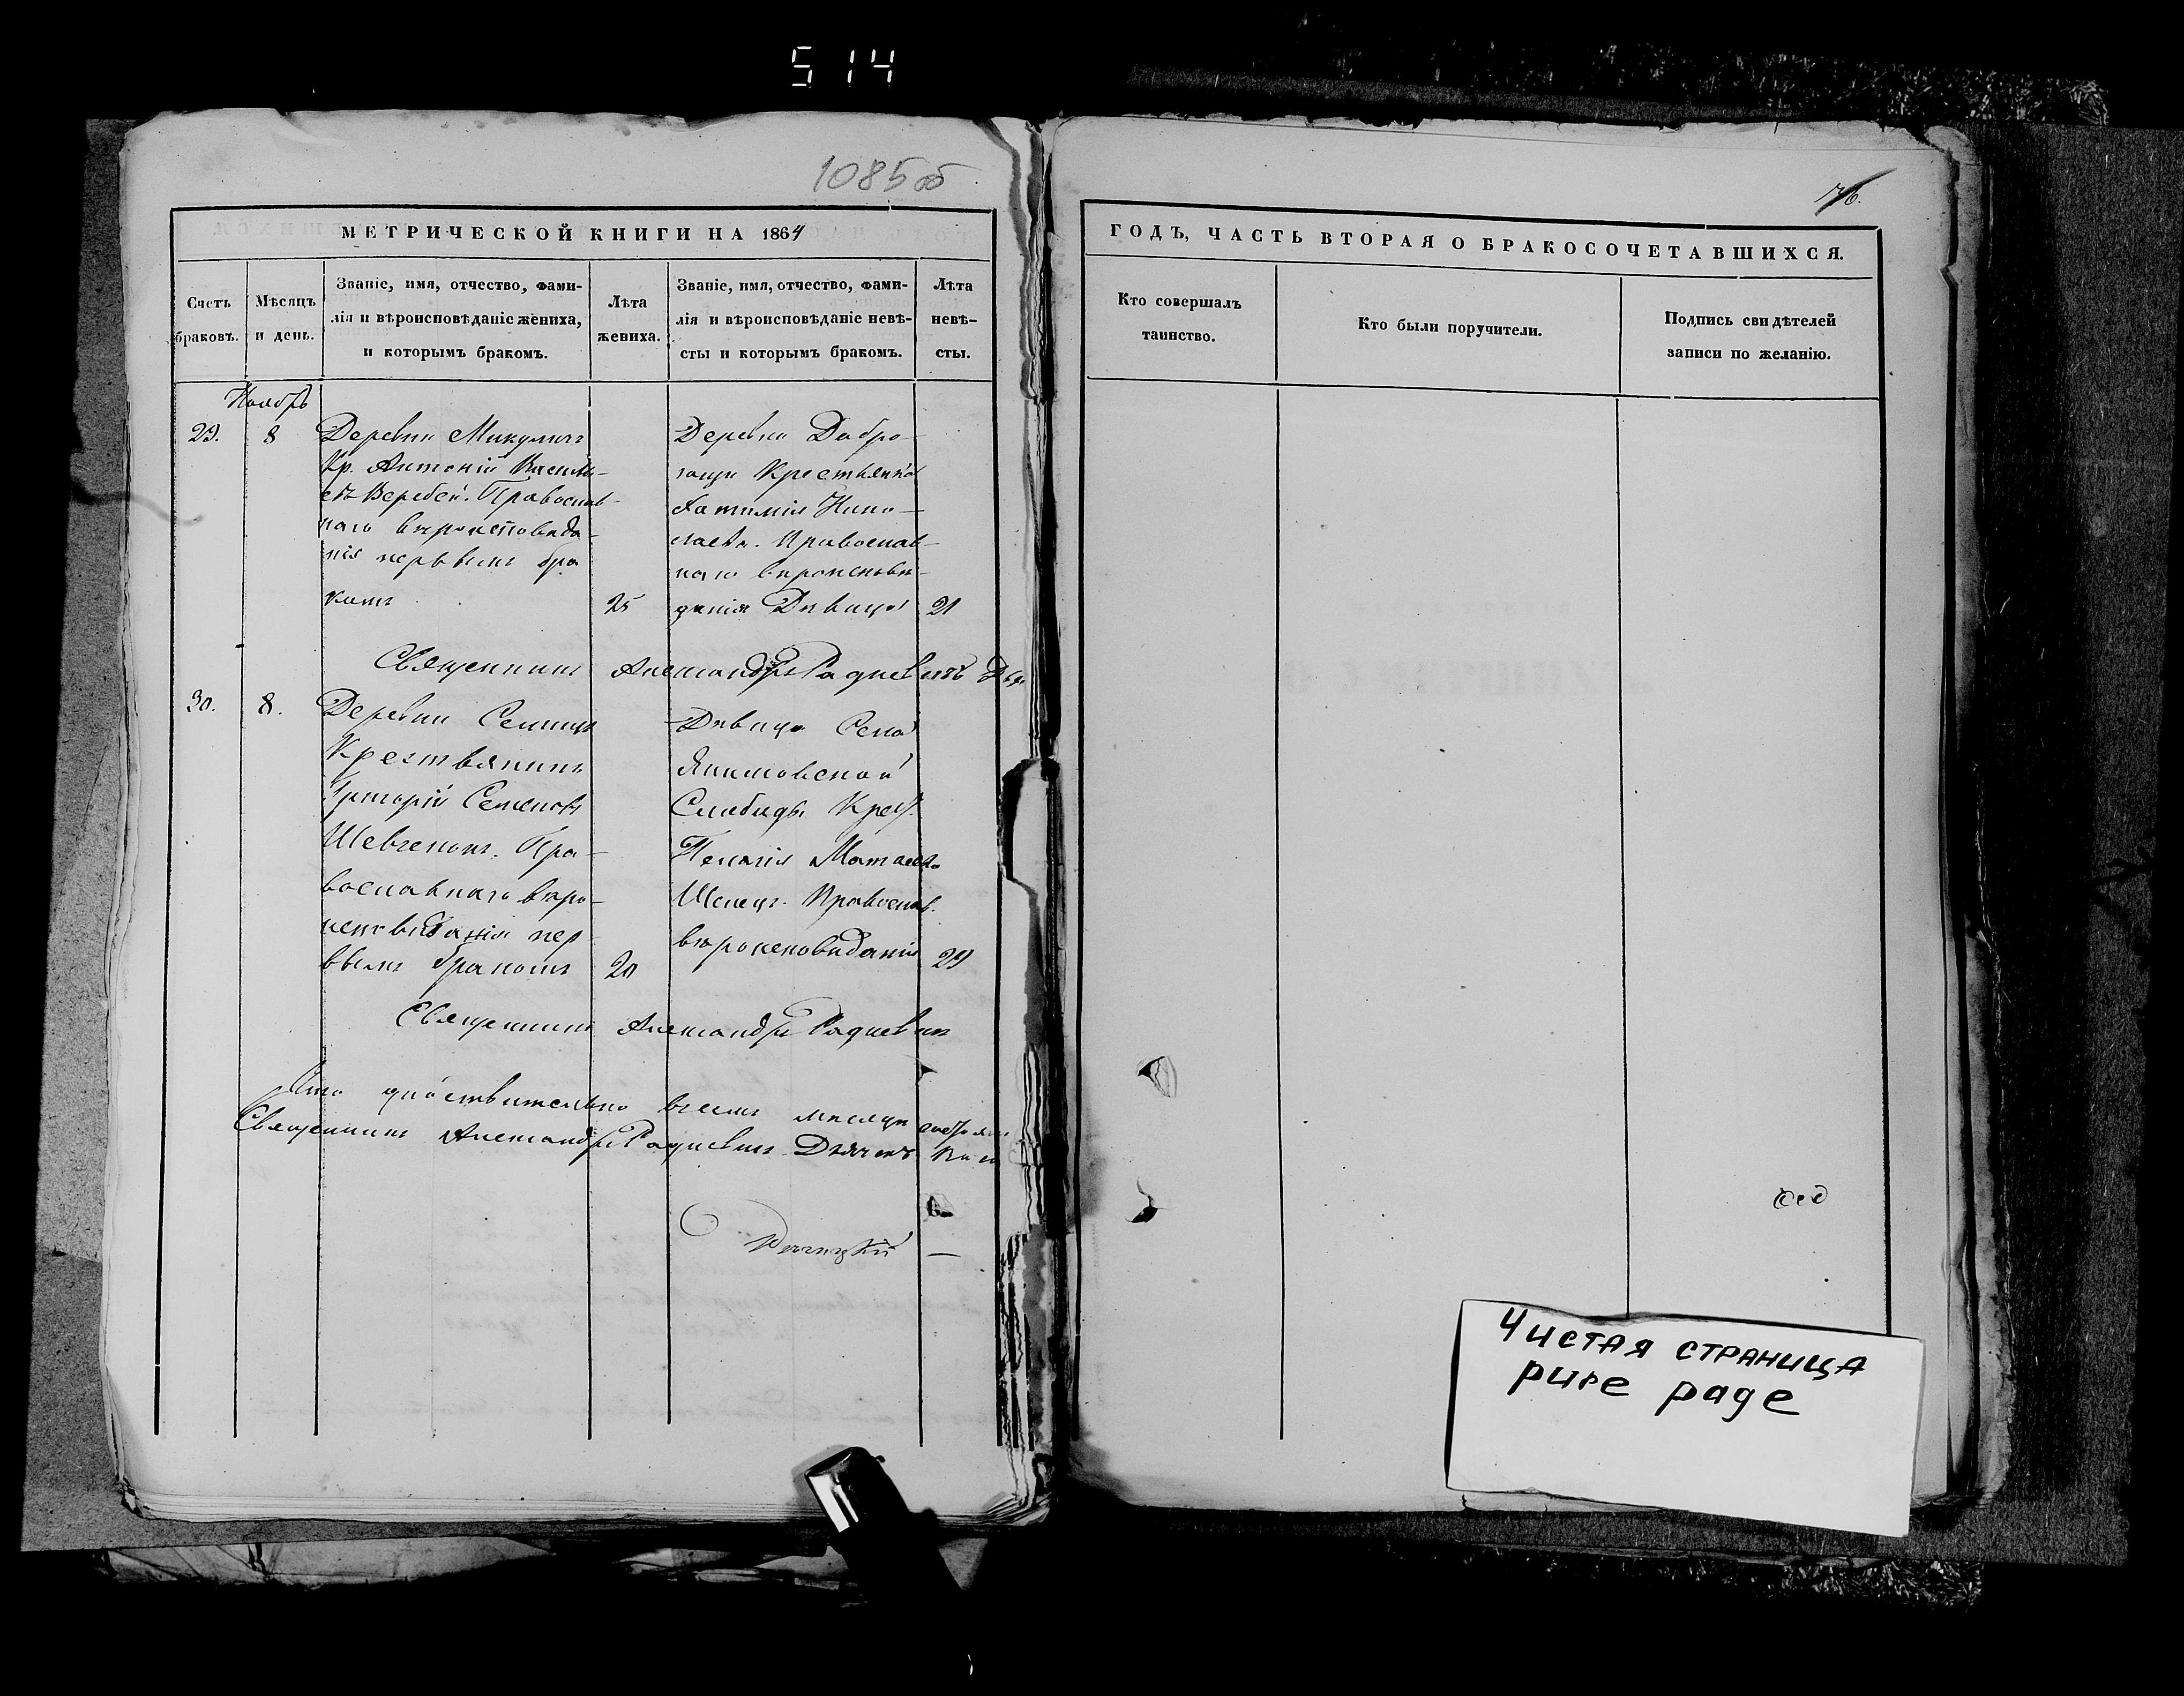 514
1085об
МЕТРИЧЕСКОЙ КНИГИ НА 1864
Счетъ браковъ.
Мѣсяцъ и день.
Званіе, имя, отчество, фами-
лія и вѣроисповѣданіе жениха,
и которымъ бракомъ.
Лѣта жениха.
Званіе, имя, отчество, фами-
лія и вѣроисповѣданіе невѣ-
сты и которымъ бракомъ.
Лѣта невѣ-
сты.
Ноябрь
29. 8
Деревни Микуличъ
Кр. Антоній Василь-
евъ Веребей. Православ-
наго вѣроисповѣда-
нія первымъ бра
комъ
25
Деревни Добро-
гощи Крестьянка
Нико-
лаева. Православ-
наго вѣроисповѣ-
данія Дѣвица
21
Священникъ Александръ Радкевичъ
30. 8.
Деревни Селищъ
Крестьянинъ
Григорій Семеновъ
Шевченокъ. Пра-
вославнаго вѣро-
исповѣданія пер
вымъ бракомъ
20
Дѣвица Села
Якимовской
Слободы Крест.
Пелагія Матвеева
Православ.
вѣроисповѣданія
29
Священникъ Александръ Радкевичъ
дѣйствительно всемъ мѣсяцѣ
Священникъ Александръ Радкевичъ Дьячекъ
76.
ГОДЪ, ЧАСТЬ ВТОРАЯ О БРАКОСОЧЕТАВШИХСЯ.
Кто совершалъ
таинство.
Кто были поручители.
Подпись свидѣтелей
записи по желанію.
Чистая страница
pure page